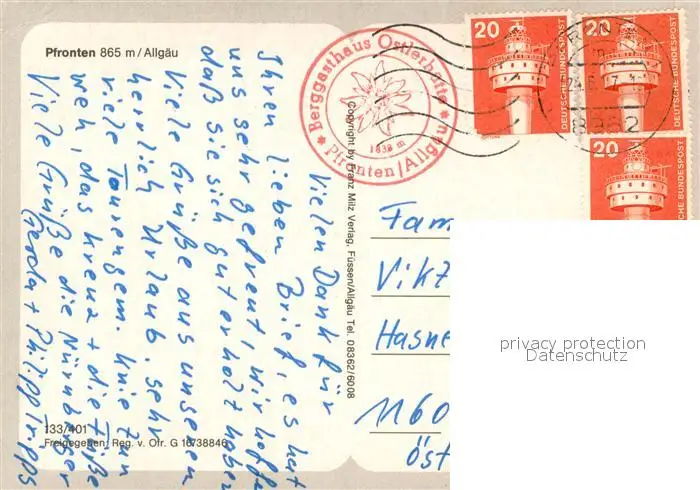 Pfronten 865 m / Allgäu
Vielen Dank für
Ihren lieben Brief, es hat
uns sehr gefreut, wir hoffen
daß Sie sich gut erholt haben
Viele Grüße aus unseren
herrlich Urlaub, sehr
viele Tourengem. Knie tun
weh, das Kreuz + die Füße
Viele Grüße die Nürnberger
Gerda + Philipp
133/401
Freigegeben: Reg. v. Ofr. G 16/38846
Copyright by Franz Milz Verlag, Füssen/Allgäu Tel. 08362/6008
Berggasthaus Ostlerhütte
1838 m
Pfronten/Allgäu
20
DEUTSCHE BUNDESPOST
20
DEUTSCHE BUNDESPOST
20
8962
Fam
Vikt
Hasne
1160
öst
privacy protection
Datenschutz